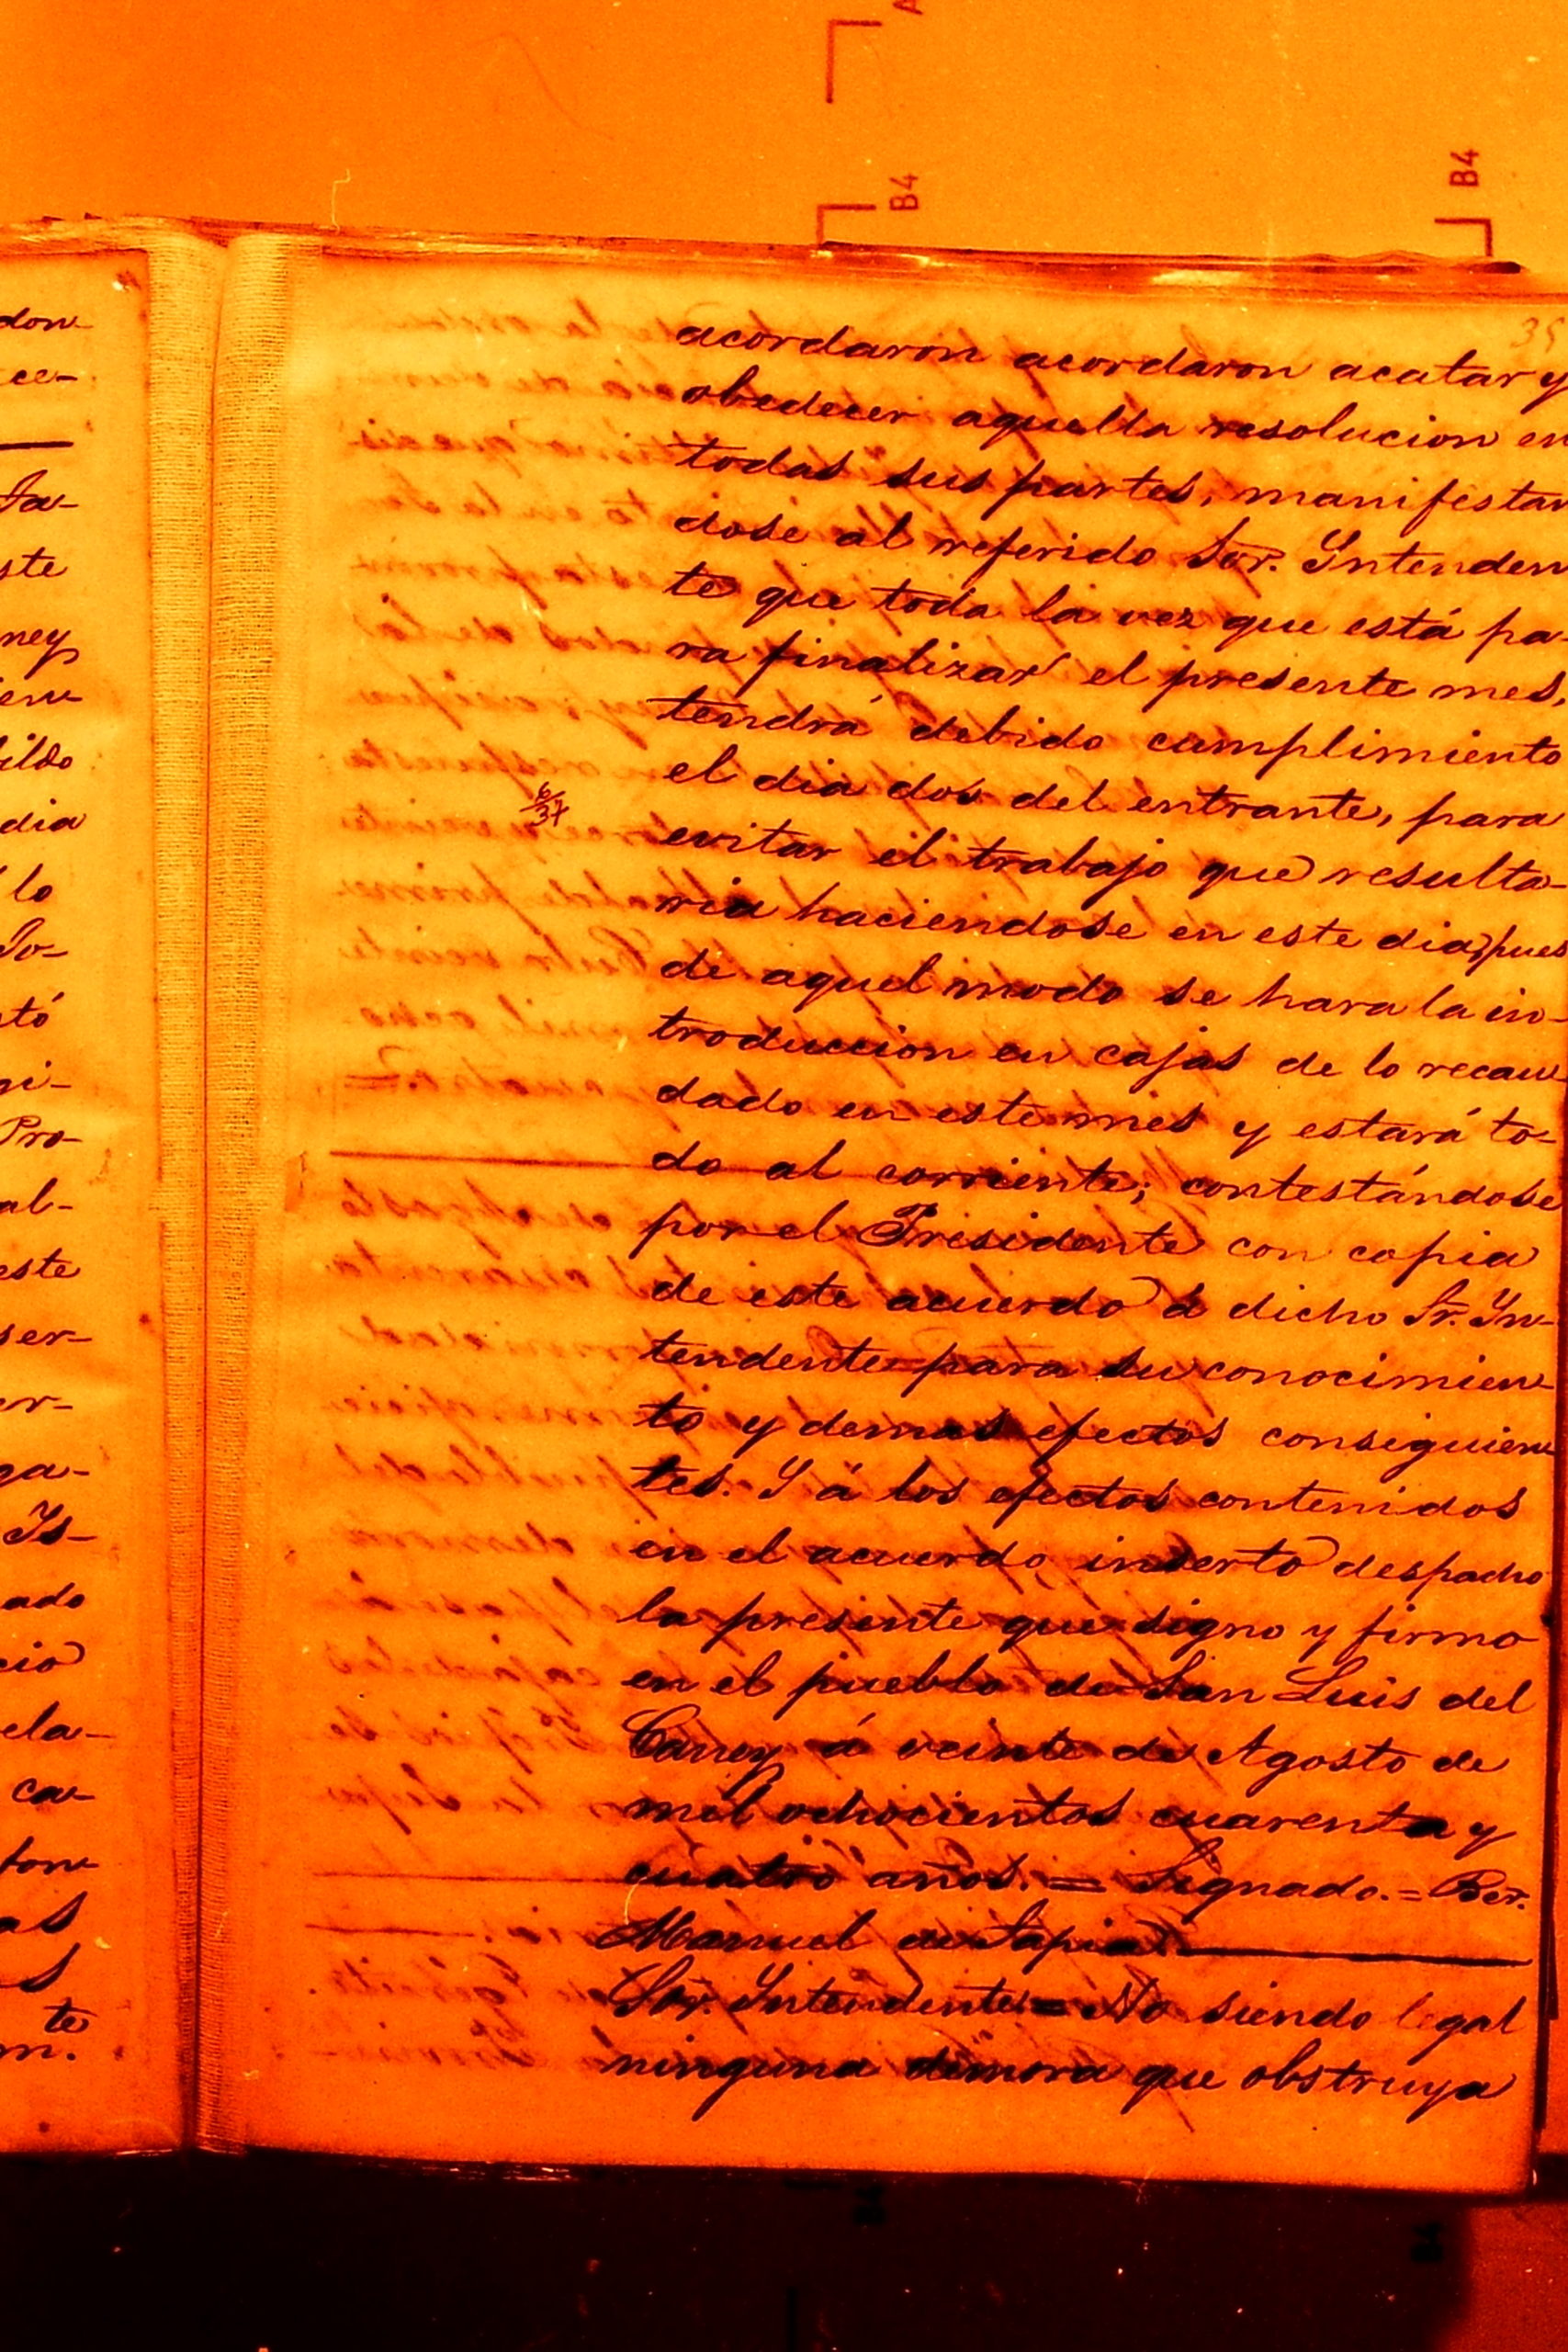 B4
B4
don-
ce-
Ja-
ste
ney
ien-
ildo
dia
lo
So-
tó
gi-
Pro-
al-
este
ser-
er-
ga-
Is-
ado
cio
ela-
ca-
ton-
as
s
te
m.
35
acordaron acordaron acatar y
obedecer aquella resolucion en
todas sus partes, manifestan
dose al referido Sor. Intenden
te que toda la vez que está pa-
ra finalizar el presente mes,
tendrá debido cumplimiento
el dia dos del entrante, para
6/37
evitar el trabajo que resulta-
ria haciendose en este dia, pues
de aquel modo se hara la in-
troduccion en cajas de lo recau-
dado en este mes y estará to-
do al corriente; contestándose
por el Presidente con copia
de este acuerdo á dicho Sr. In-
tendente para su conocimien-
to y demas efectos consiguien-
tes. Y á los efectos contenidos
en el acuerdo inserto despacho
la presente que signo y firmo
en el pueblo de San Luis del
Caney á veinte de Agosto de
mil ochocientos cuarenta y
cuatro años. = Signado. = Ber.
Manuel de Tapia.
Sor. Intendente = No siendo legal
ninguna demora que obstruya